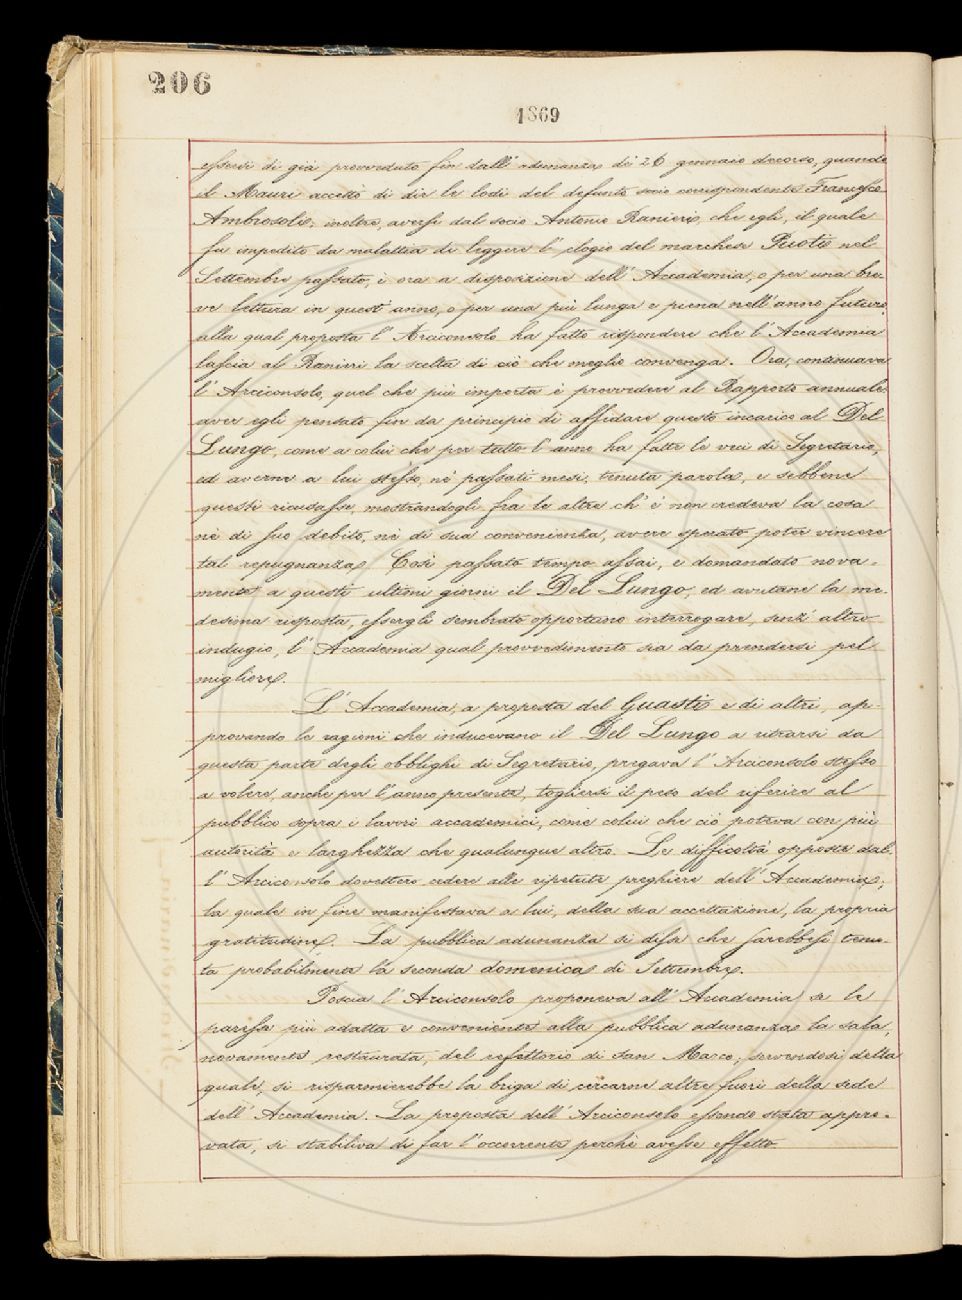 206
1869
essersi di già provveduto fin dall' adunanza de' 26 gennaio decorso, quando
il Mauri accettò di dir le lodi del defunto socio corrispondente Francesco
Ambrosoli; inoltre aversi dal socio Antonio Ranieri, che egli, il quale
fu impedito da malattia di leggere l' elogio del marchese Puoti nel
Settembre passato, è ora a disposizione dell' Accademia, o per una bre-
ve lettura in quest' anno, o per una più lunga e piena nell' anno futuro,
alla qual proposta l' Arciconsolo ha fatto rispondere che l' Accademia
lascia al Ranieri la scelta di ciò che meglio convenga. Ora, continuava
l' Arciconsolo, quel che più importa è provvedere al Rapporto annuale:
aver egli pensato fin da principio di affidare questo incarico al Del
Lungo, come a colui che per tutto l' anno ha fatte le veci di Segretario,
ed averne a lui stesso, ne' passati mesi, tenuta parola, e sebbene
questi ricusasse, mostrandogli fra le altre ch' e' non credeva la cosa
nè di suo debito, nè di sua convenienza, avere sperato poter vincere
tal repugnanza. Così passato tempo assai, e domandato nova-
mente a questi ultimi giorni il Del Lungo, ed avutane la me-
desima risposta, essergli sembrato opportuno interrogare, senz' altro
indugio, l' Accademia qual provvedimento sia da prendersi pel
migliore.
L' Accademia, a proposta del Guasti e di altri, ap-
provando le ragioni che inducevano il Del Lungo a ritrarsi da
questa parte degli obblighi di Segretario, pregava l' Arciconsolo stesso
a volere, anche per l' anno presente, togliersi il peso del riferire al
pubblico sopra i lavori accademici, come colui che ciò poteva con più
autorità e larghezza che qualunque altro. Le difficoltà opposte dal-
l' Arciconsolo dovettero cedere alle ripetute preghiere dell' Accademia;
la quale in fine manifestava a lui, della sua accettazione, la propria
gratitudine. La pubblica adunanza si disse che sarebbesi tenu-
ta probabilmente la seconda domenica di Settembre.
Poscia l' Arciconsolo proponeva all' Accademia se le
paresse più adatta e conveniente alla pubblica adunanza la sala,
novamente restaurata, del refettorio di San Marco; servendosi della
quale, si risparmierebbe la briga di cercarne altre fuori della sede
dell' Accademia. La proposta dell' Arciconsolo essendo stata appro-
vata, si stabiliva di far l' occorrente perchè avesse effetto.